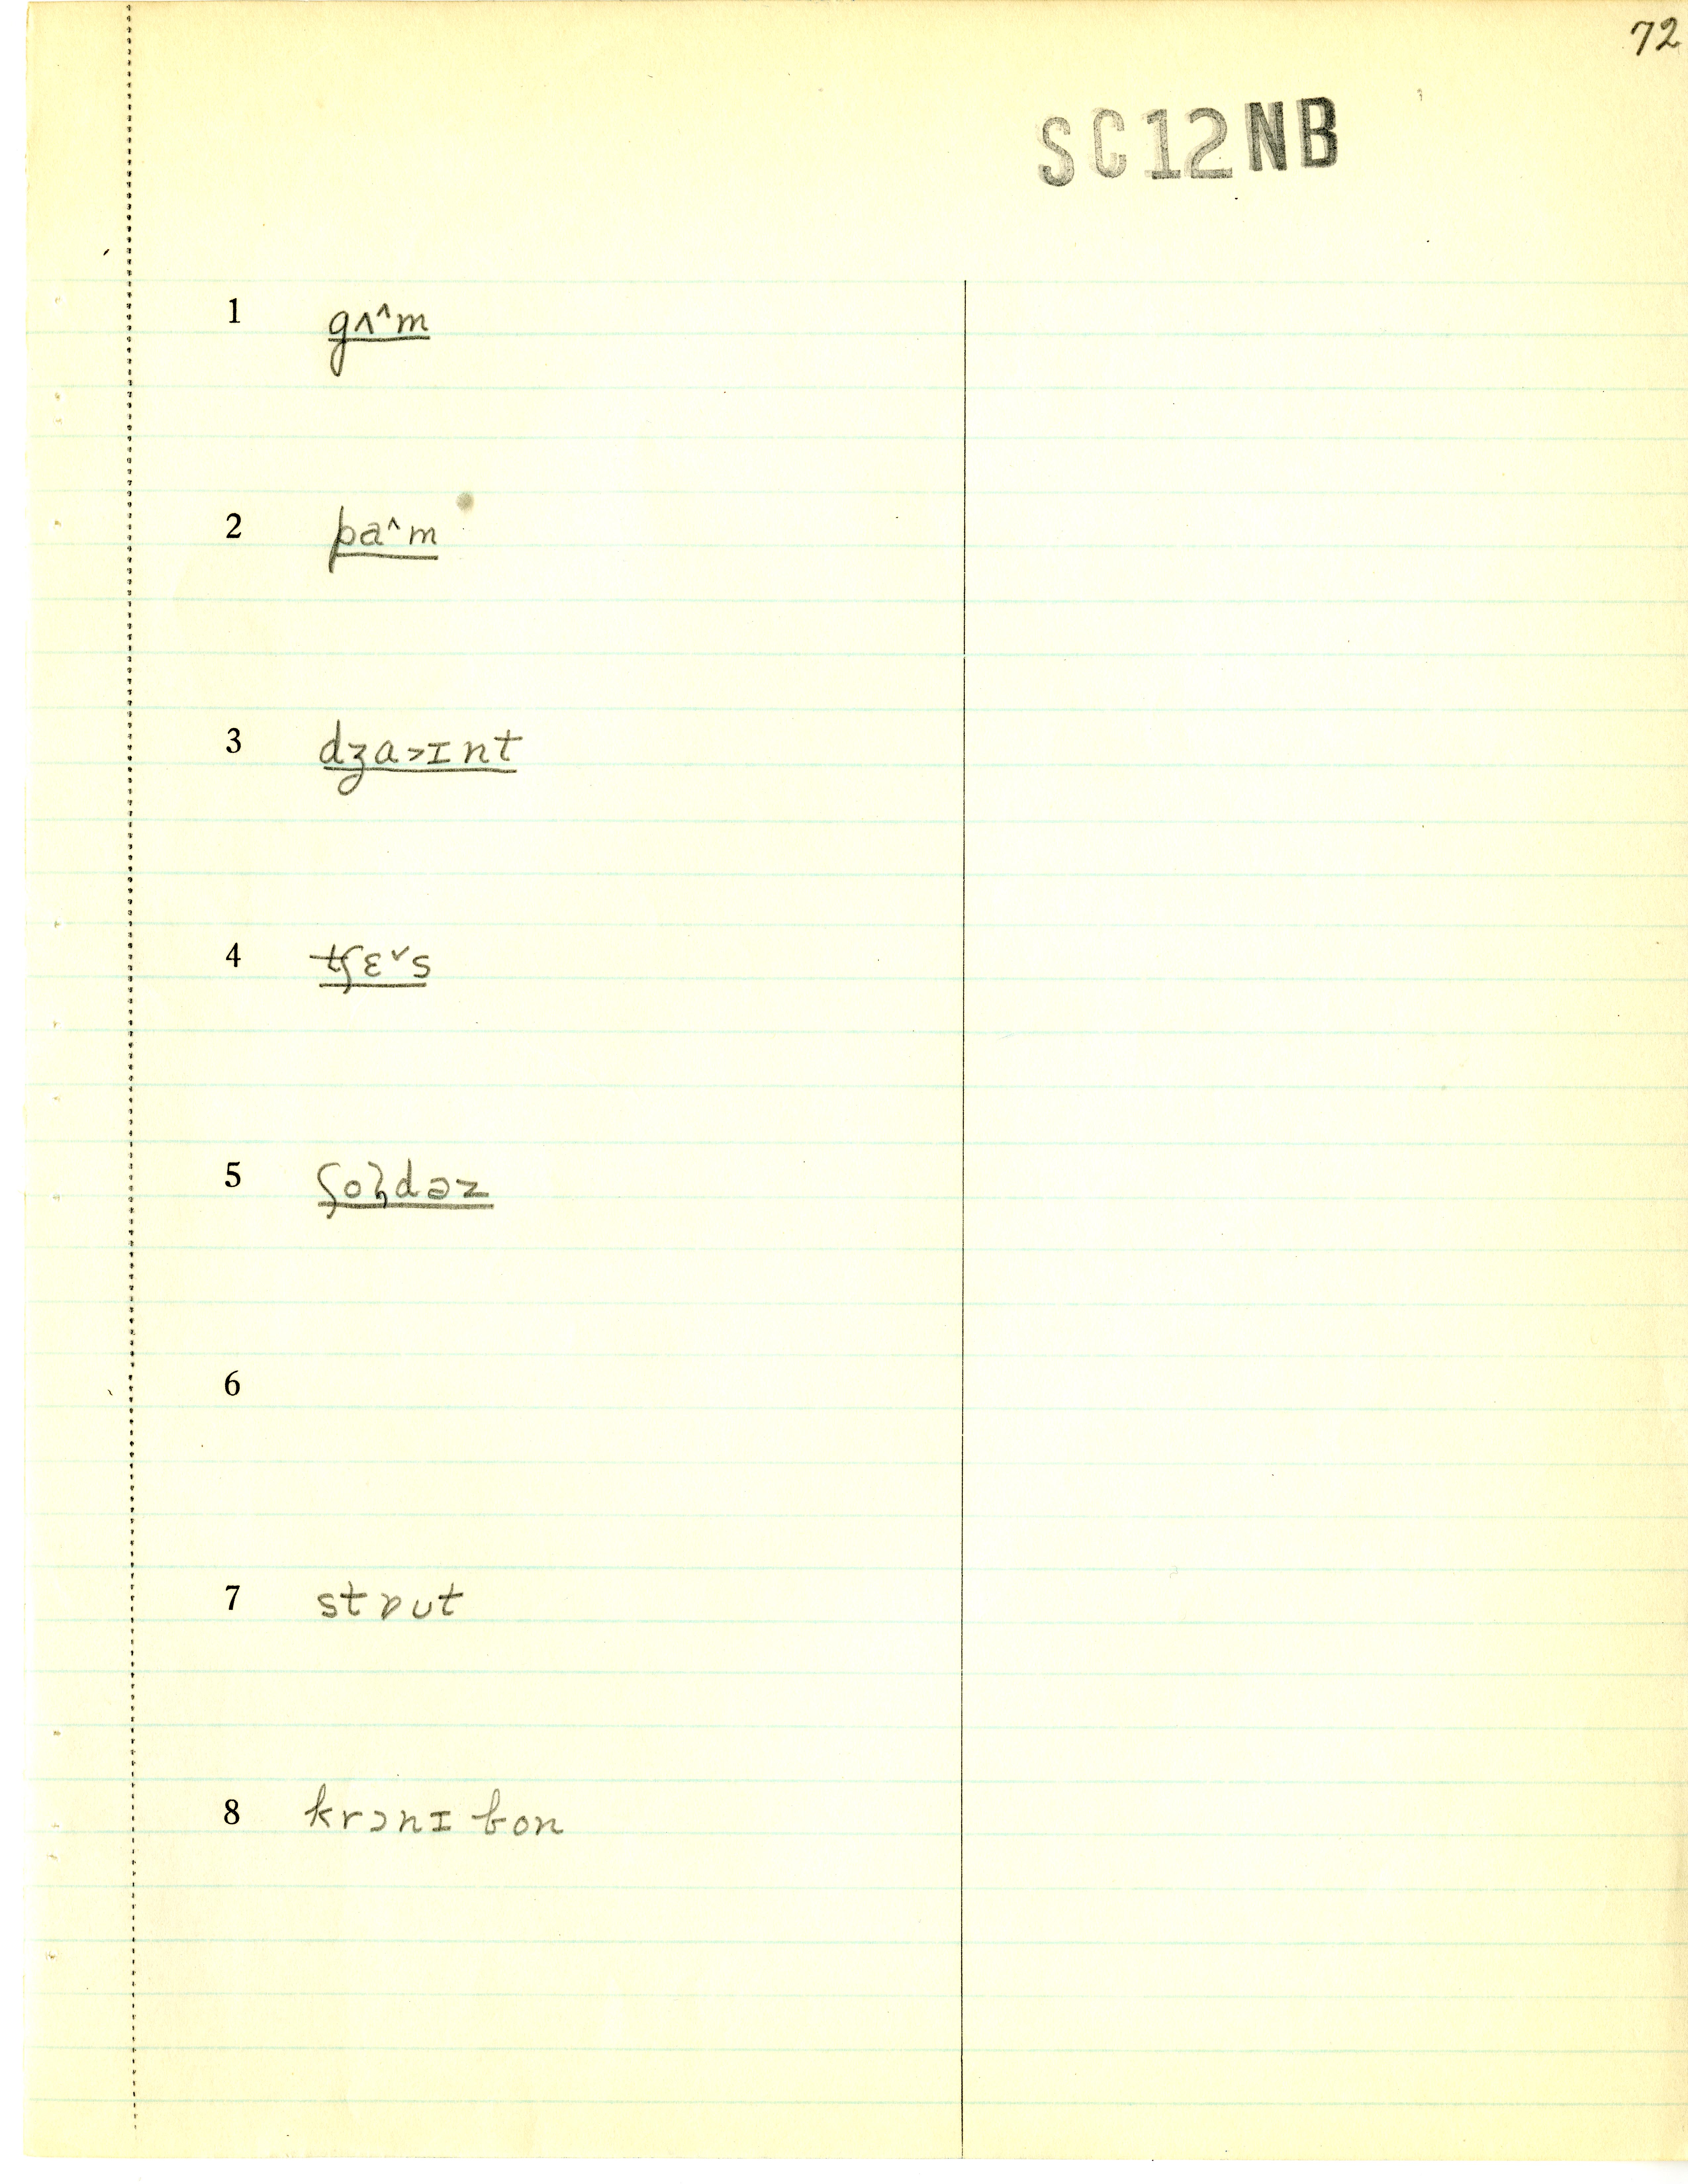 72
SC12NB
1 gʌ^m
2 pa^m
3 dʒa>ɪnt
4 tʃɛˇs
5 ʃoɫdəz
6
7 stɒut
8 krɔnɪ bon